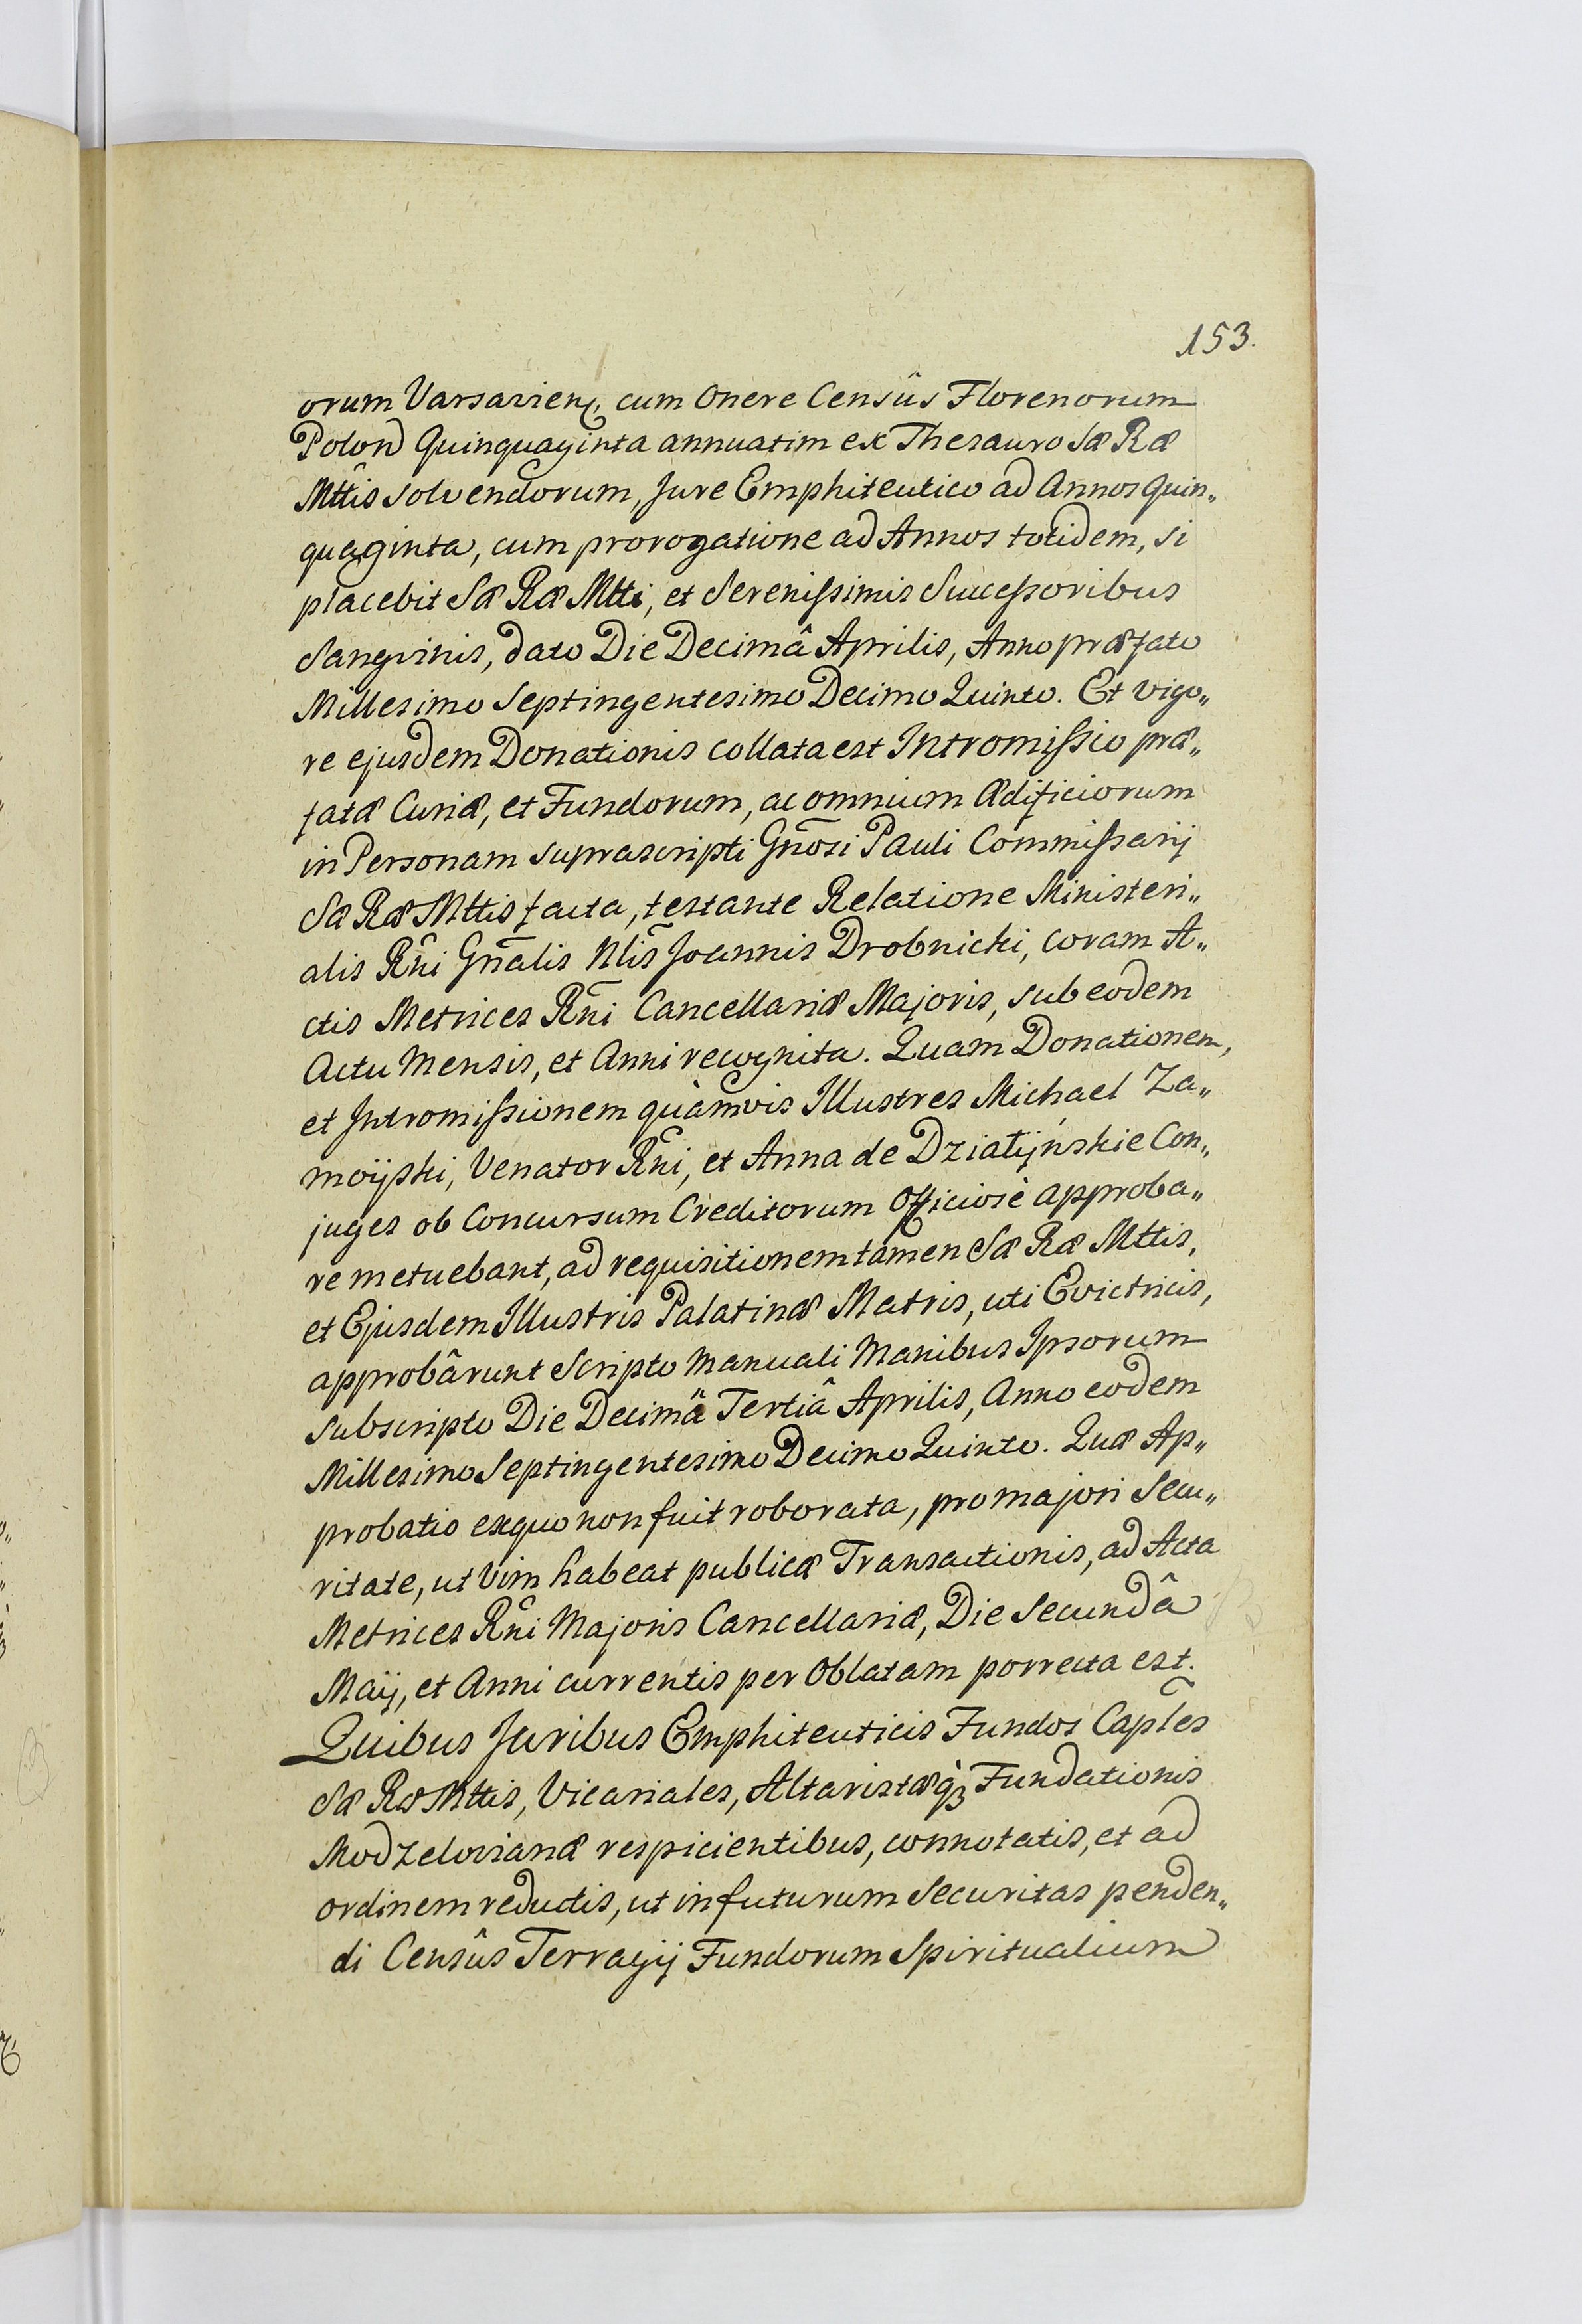 153.
orum Varsavien, cum Onere Censûs Florenorum
Polon Quinquaginta annuatim ex Thesauro Sæ Ræ
Mttis solvendorum, Jure Emphiteutico ad Annos Quin„
quaginta, cum prorogatione ad Annos totidem, si
placebit Sæ Ræ Mtti, et Serenissimis Successoribus
Sangvinis, dato Die Decimâ Aprilis, Anno præfato
Millesimo Septingentesimo Decimo Quinto. Et vigo„
re ejusdem Donationis collata est Intromissio præ„
fatæ Curiæ, et Fundorum, ac omnium Ædificiorum
in Personam suprascripti Gnõsi Pauli Commissarij
Sæ Ræ Mttis facta, testante Relatione Ministeri„
alis Rñi Gñalis Nlis Joannis Drobnicki, coram A„
ctis Metrices Rñi Cancellariæ Majoris, sub eodem
Actu Mensis, et Anni recognita. Quam Donationem,
et Intromissionem quàmvis Illustres Michael Za„
moÿski, Venator Rñi, et Anna de Działÿńskie Con„
juges ob Concursum Creditorum Officiosè approba„
re metuebant, ad requisitionem tamen Sæ Ræ Mttis,
et Ejusdem Illustris Palatinæ Matris, uti Evictricis,
approbârunt Scripto Manuali Manibus Ipsorum
subscripto Die Decimâ Tertiâ Aprilis, Anno eodem
Millesimo Septingentesimo Decimo Quinto. Quæ Ap„
probatio exquo non fuit roborata, pro majori Secu„
ritate, ut Vim habeat publicæ Transactionis, ad Acta
Metrices Rñi Majoris Cancellariæ, Die Secundâ
Maij, et Anni currentis per Oblatam porrecta est.
Quibus Juribus Emphiteuticis Fundos Caples
Sæ Ræ Mttis, Vicariales, Altaristæq̀ꝫ Fundationis
Modzelovianæ respicientibus, connotatis, et ad
ordinem reductis, ut in futurum Securitas penden„
di Censûs Terragij Fundorum Spiritualium